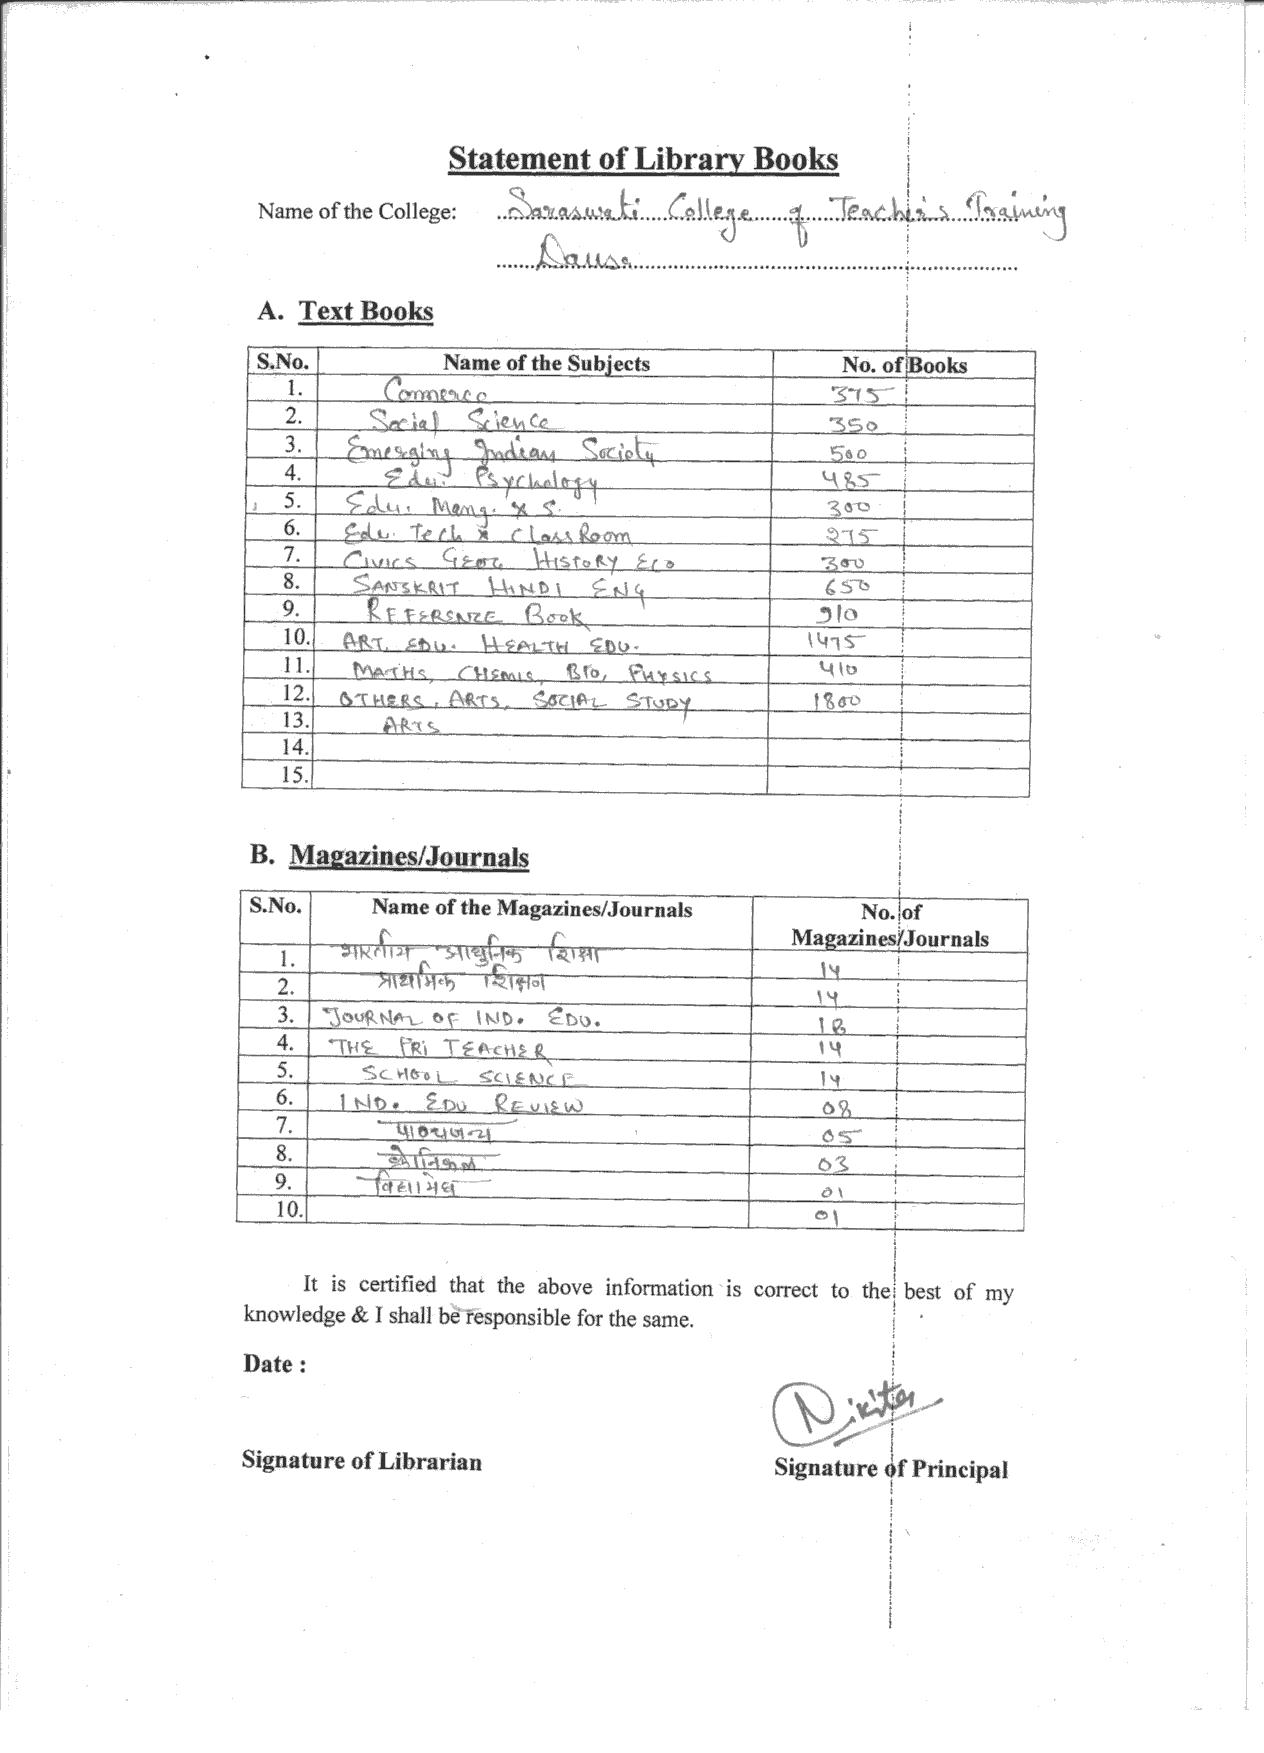 Statement of Library Books
Name of the College: Saraswati College of Teacher's Training
Dausa
A. Text Books
S.No. Name of the Subjects No. of Books
1. Commerce 375
2. Social Science 350
3. Emerging Indian Society 500
4. Edu. Psychology 485
5. Edu. Mang. & S. 300
6. Edu. Tech & Class Room 275
7. CIVICS GEOG HISTORY ECO 300
8. SANSKRIT HINDI ENG 650
9. REFERENCE Book 910
10. ART. EDU. HEALTH EDU. 1475
11. MATHS, CHEMIS, BIO, PHYSICS 410
12. OTHERS, ARTS, SOCIAL STUDY 1800
13. ARTS
14.
15.
B. Magazines/Journals
S.No. Name of the Magazines/Journals No. of
Magazines/Journals
1. भारतीय आधुनिक शिक्षा 14
2. प्राथमिक शिक्षक 14
3. JOURNAL OF IND. EDU. 18
4. THE PRI TEACHER 14
5. SCHOOL SCIENCE 14
6. IND. EDU REVIEW 08
7. 05
8. 03
9. विद्यामेघ 01
10. 01
It is certified that the above information is correct to the best of my
knowledge & I shall be responsible for the same.
Date :
Nikita
Signature of Librarian Signature of Principal